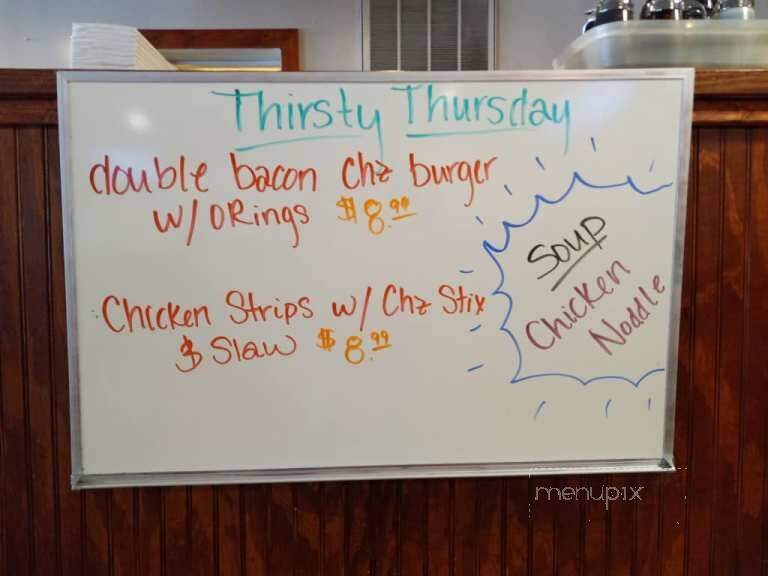 Thirsty Thursday
double bacon Chz burger
w/ ORings $8.99
Chicken Strips w/ Chz Stix
& Slaw $8.99
Soup
Chicken
Noddle
menupix